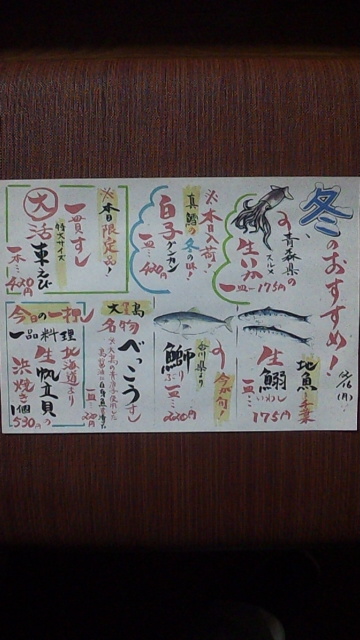 冬のおすすめ!
12/16(月)
青森県の
スルメ
生いか
一皿…175円
※本日入荷!
真鱈の冬の味!
白子グンカン
一皿…420円
※本日限定品!
一貫すし
特大サイズ
大活車えび
一本…420円
地魚…千葉
生鰯
いわし
一皿…175円
今が旬!
石川県より
鰤
ぶり
一皿…220円
大島
名物
べっこうすし
一皿…220円
今日の一押し
一品料理
北海道より
生帆立貝の
浜焼き
1個…530円